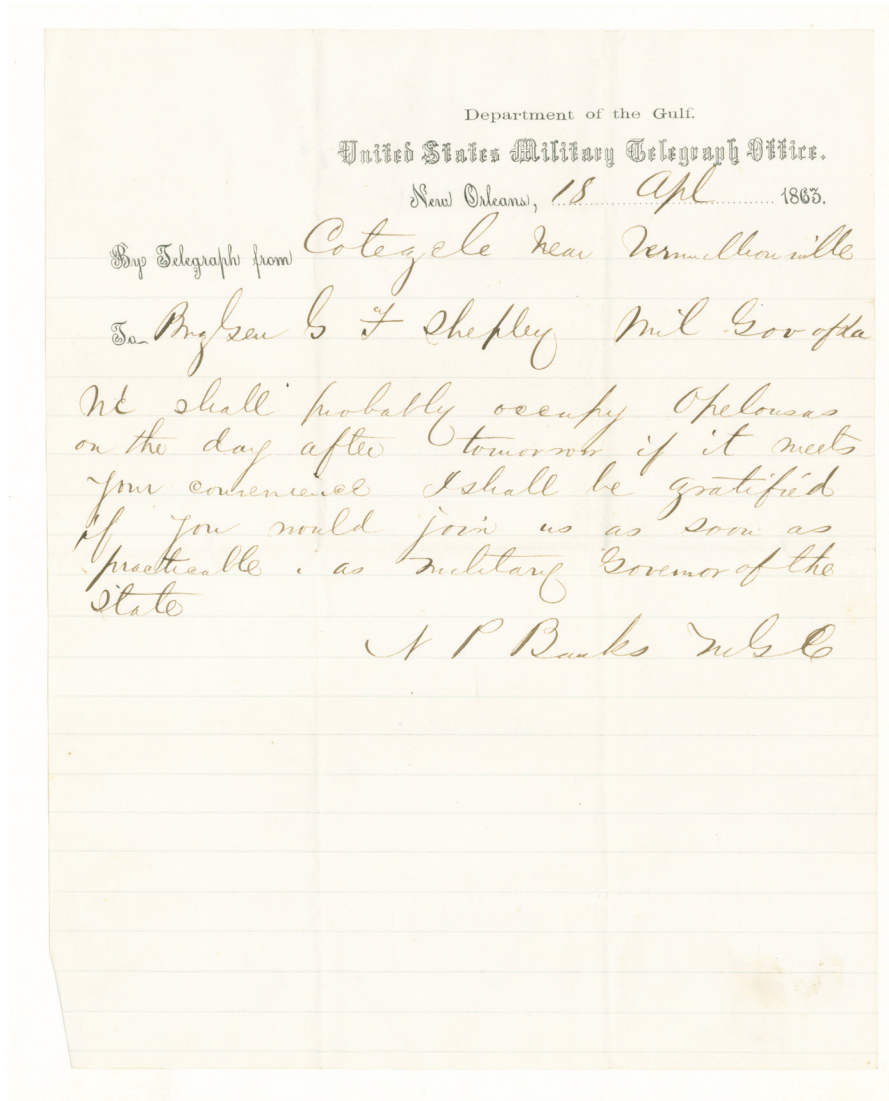 Department of the Gulf.
United States Military Telegraph Office.
New Orleans, 18 Apl 1863.
By Telegraph from Cotegele Near Vermillionville
To Brig Gen G F Shepley Mil Gov of La
We shall probably occupy Opelousas
on the day after tomorrow if it meets
your convenience I shall be gratified
if you would join us as soon as
practicable . as military Governor of the
state
N P Banks M G C